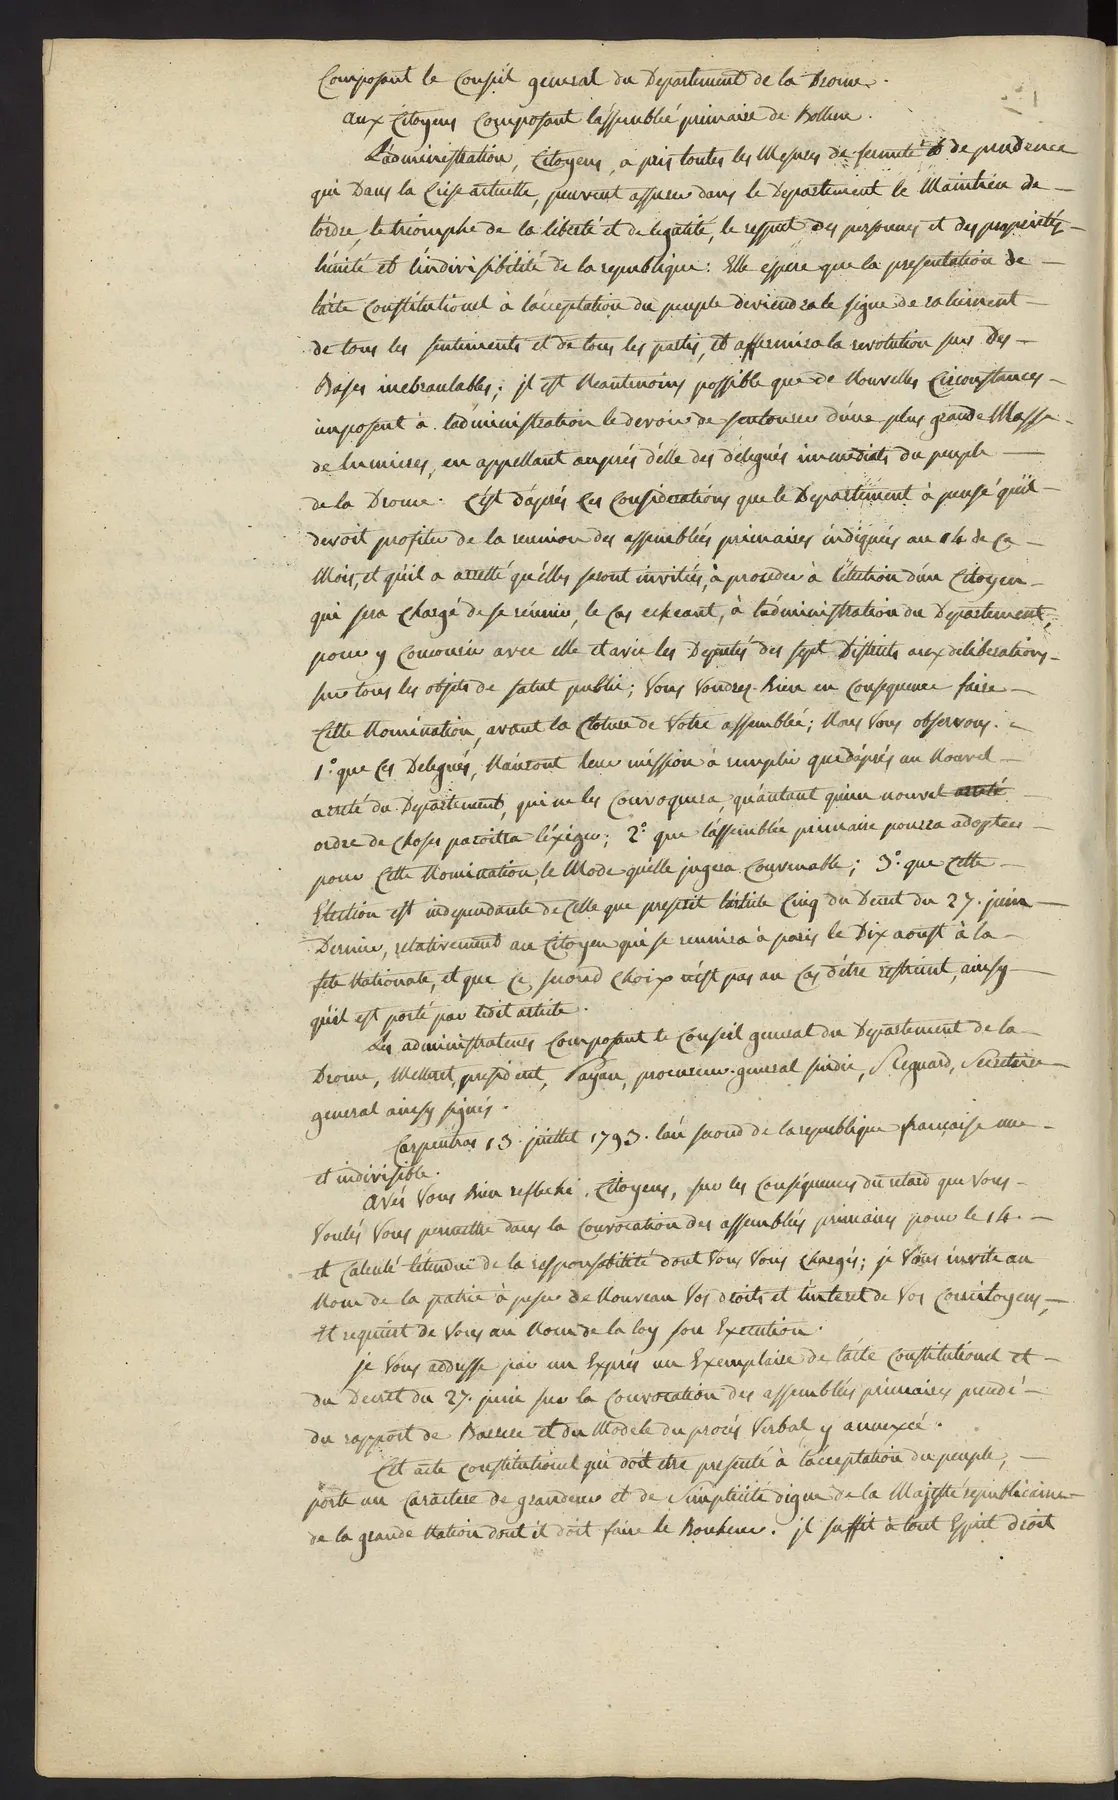 Composant le Conseil general du Departement de la Drome.
aux Citoyens Composant l'assemblée primaire de Bollene.
L'administration, Citoyens, a pris toutes les Mesures de fermeté & de prudence
qui Dans la Crise actuelle, peuvent assurer dans le Departement le Maintien de —
l'ordre, le triomphe de la liberté et de l'egalité, le respect des personnes et des proprietés, —
l'unité et l'indivisibilité de la republique: Elle espere que la presentation de —
l'acte Constitutionel à l'acceptation du peuple deviendra le signe de raliement —
de tous les sentiments et de tous les partis, et affermira la revolution sur Des —
Bases inebranlables; il est Neantmoins possible que de Nouvelles Circonstances —
imposent à l'administration le devoir de s'entourer d'une plus grande Masse —
de lumieres, en appellant auprés d'elle des délegués immediats du peuple —
de la Drome. C'est d'aprés Ces Considerations que le Departement à pensé qu'il —
devoit profiter de la reunion des assemblées primaires indiquées au 14 de Ce —
Mois, et qu'il a arretté qu'elles seront invitées, à proceder à l'élection d'un Citoyen —
qui sera Chargé de se réunir, le Cas echeant, à l'administration du Departement,
pour y Concourir avec elle et avec les Deputés des sept Districts aux déliberations —
sur tous les objets de salut public; Vous Voudrez Bien en Consequence faire —
Cette Nomination, avant la Cloture de Votre assemblée; Nous Vous observons. —
1.° que Ces Delegués, N'auront leur mission à remplir que d'aprés un Nouvel —
arreté du Departement, qui ne les Convoquera, qu'autant qu'un nouvel arreté —
ordre de Choses paroitra l'éxiger; 2.° que l'assemblée primaire pourra adopter —
pour Cette Nomination, le Mode qu'elle jugera Convenable; 3.° que Cette —
Election est independante de Celle que prescrit l'article Cinq du Decret du 27. juin —
Dernier, relativement au Citoyen qui se reunira à paris le Dix aoust à la —
fete Nationale, et que Ce second Choix n'est pas au Cas d'étre restreint, ainsy —
qu'il est porté par ledit article.
Les administrateurs Composant le Conseil general du Departement de la —
Drome, Melleret, president, Payan, procureur-general sindic, Regnard, Secretaire —
general ainsy signés.
Carpentras 13. juillet 1793. l'an second de la republique française une —
et indivisible.
Avés Vous Bien reflechi, Citoyens, sur les Conséquences du retard que Vous —
Voulés Vous permettre dans la Convocation des assemblées primaires pour le 14. —
et Calculé l'étenduë de la responsabilité dont Vous Vous Chargés; je Vous invite au
Nom de la patrie à peser de Nouveau Vos droits et l'interet de Vos Concitoyens, —
Et requiert de Vous au Nom de la loy son Execution.
je Vous addresse par un Exprés un Exemplaire de l'acte Constitutionel et —
du Decret du 27. juin sur la Convocation des assemblées primaires precedé —
du rapport de Barrere et du Modele du procés Verbal y annexcé.
Cet acte Constitutionel qui doit etre presenté à l'acceptation du peuple, —
porte un Caractere de grandeur et de Simplicité digne de la Majesté republicaine —
de la grande Nation dont il doit faire le Bonheur. il suffit à tout Esprit droit